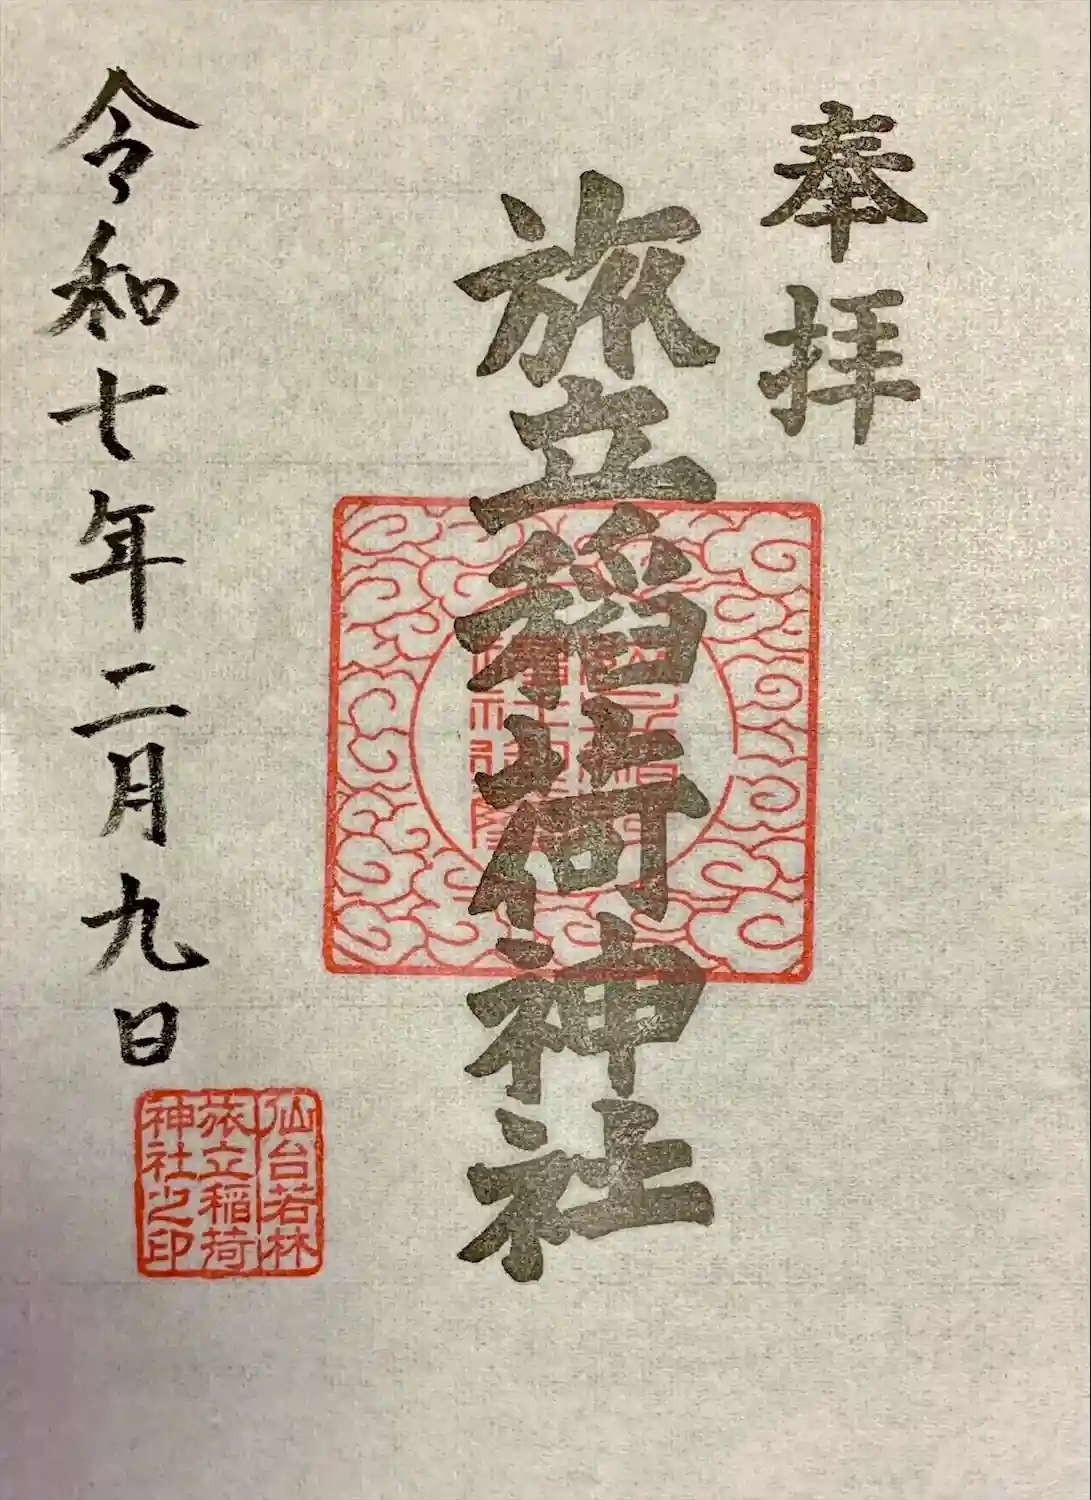 奉拝
旅立稲荷神社
令和七年二月九日
仙台若林
旅立稲荷
神社之印